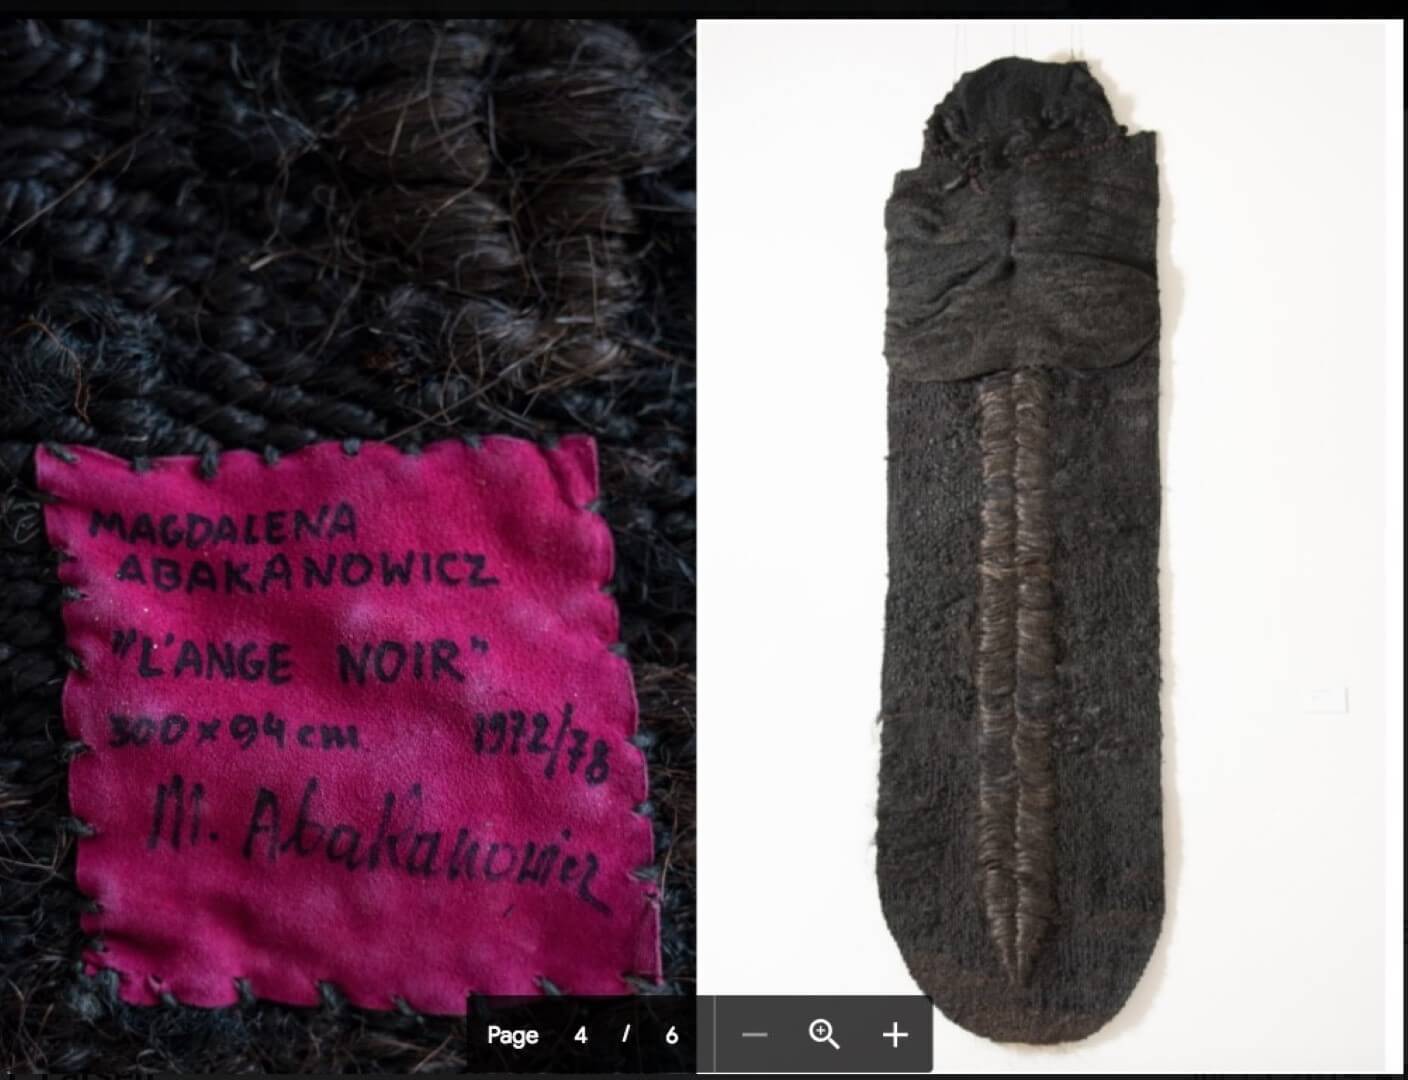 MAGDALENA
ABAKANOWICZ
"L'ANGE NOIR"
300 x 94 cm 1972/78
M. Abakanowicz
Page 4 / 6